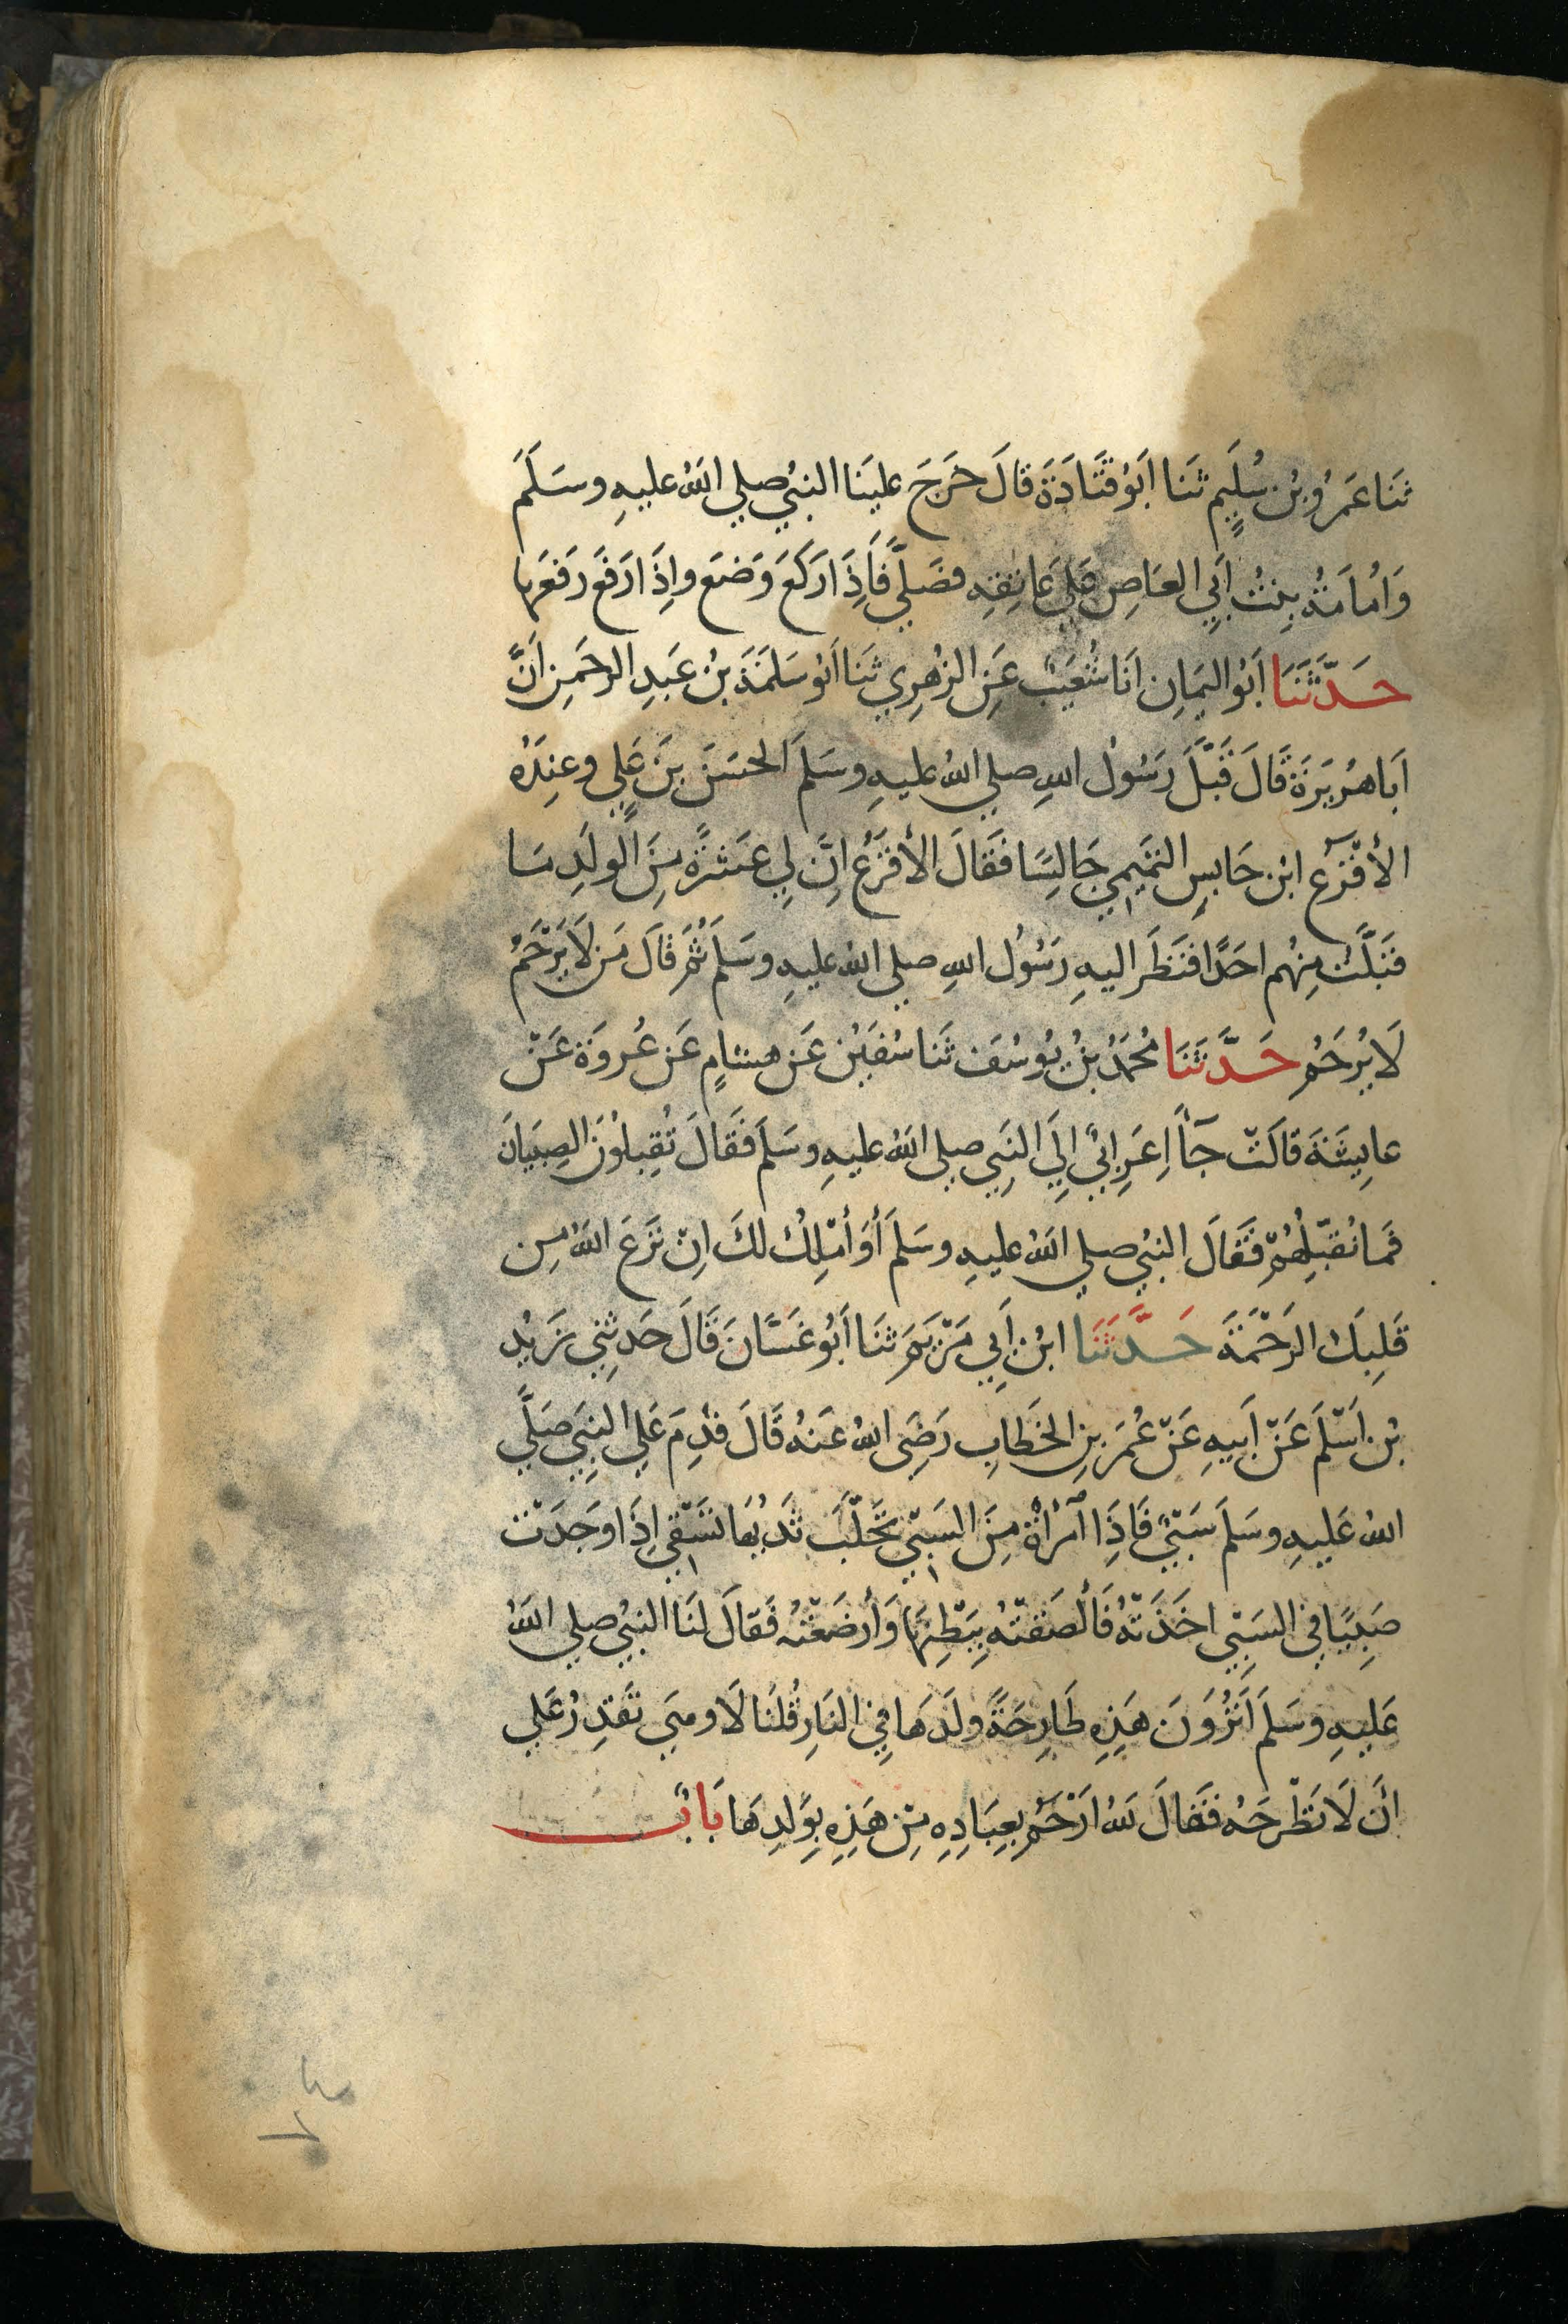 ثَنَا عَمْرُو بْنُ سُلَيمٍ ثَنَا اَبُو قَتَادَةَ قَالَ خَرَجَ علينَا النبيُ صلي اللهُ عليهِ وسَلَمَ
وَاُمَامَةُ بِنتُ اَبِي العَاصِ عَلي عَاتِقِهِ فصَلَّي فَاِذَا رَكَعَ وَضَعَ واِذَا رَفَعَ رَفعَها
حَدَّثَنَا اَبُو اليَمَانِ اَنَا شُعَيْبٌ عَنِ الزهْرِي ثَنَا اَبُو سَلَمَةَ بْنُ عَبدِ الرحمَنِ اَنَّ
اَبَا هُرَيرَةَ قَالَ قَبَّلَ رَسُولُ اللهِ صلي اللهُ عليهِ وسَلمَ الحسَنَ بنَ عَلِيٍ وعِندَهُ
الأَقْرَعِ ابْن حَابسٍ التمَيمي جَالِسًا فَقَالَ الأَقرَعُ اِنَّ لِي عَشرَةً مِنَ الولَدِ مَا
قبَلَّتُ مِنْهُم احَدًا فنَظَرَ اليهِ رَسُولُ اللهِ صلي اللهُ عليهِ وسَلمَ ثُمَّ قَالَ مَن لَا يَرْحَمُ
لَا يُرحَمُ حَدَّثَنَا مُحَمَدُ بْنُ يُوسُفَ ثَنَا سُفيَنُ عَن هشَامٍ عَن عُروَةَ عَنْ
عايِشَةَ قَالَتْ جَآَ اَعرَابِيٌ اِلَي النَبِي صلي اللهُ عليهِ وسَلمَ فَقَالَ تُقَبِلُونَ الصِبيَانَ
فمَا نُقبّلُهُمْ فَقَالَ النبيُ صلي اللهُ عليهِ وسَلمَ أَوَ أَمْلِكُ لكَ اِنْ نَزَعَ اللهُ مِن
قَلبِكَ الرَحْمَةَ حَدَّثَنَا ابْنُ اَبِي مَرْيَمَ ثنَا اَبُو غَسَّانَ قَالَ حَدثنِي زَيدُ
بْن اَسْلَمَ عَنْ اَبيهِ عَنْ عُمَرَ بنِ الخطَابِ رَضِيَ اللهُ عَنهُ قَالَ قدِمَ عَلي النبِي صَلَّي
اللهُ عَليهِ وسَلمَ سَبْيٌ فَاِذَا آمْرَأَةٌ مِنَ السَبْيِ تَحَلَّبَ ثَديُهَا تَسْقِي اِذَا وَجَدَتْ
صَبِيًا في السَبْيِ اخَذَتهُ فَأَلصَقتْهُ بِبَطْنِهَا وَأَرضَعَتْهُ فَقالَ لنَا النبيُ صلي اللهُ
عَليهِ وسَلمَ اَتَرُونَ هَذِهِ طَارِحَةً ولَدهَا فِي النَارِ قُلنَا لَا وهِيَ تَقدِرُ عَلي
اَن لَا تَطْرحَهُ فَقَالَ للهُ ارْحَمُ بِعِبَادِهِ مِنْ هَذِهِ بِوَلدِهَا بَابُ